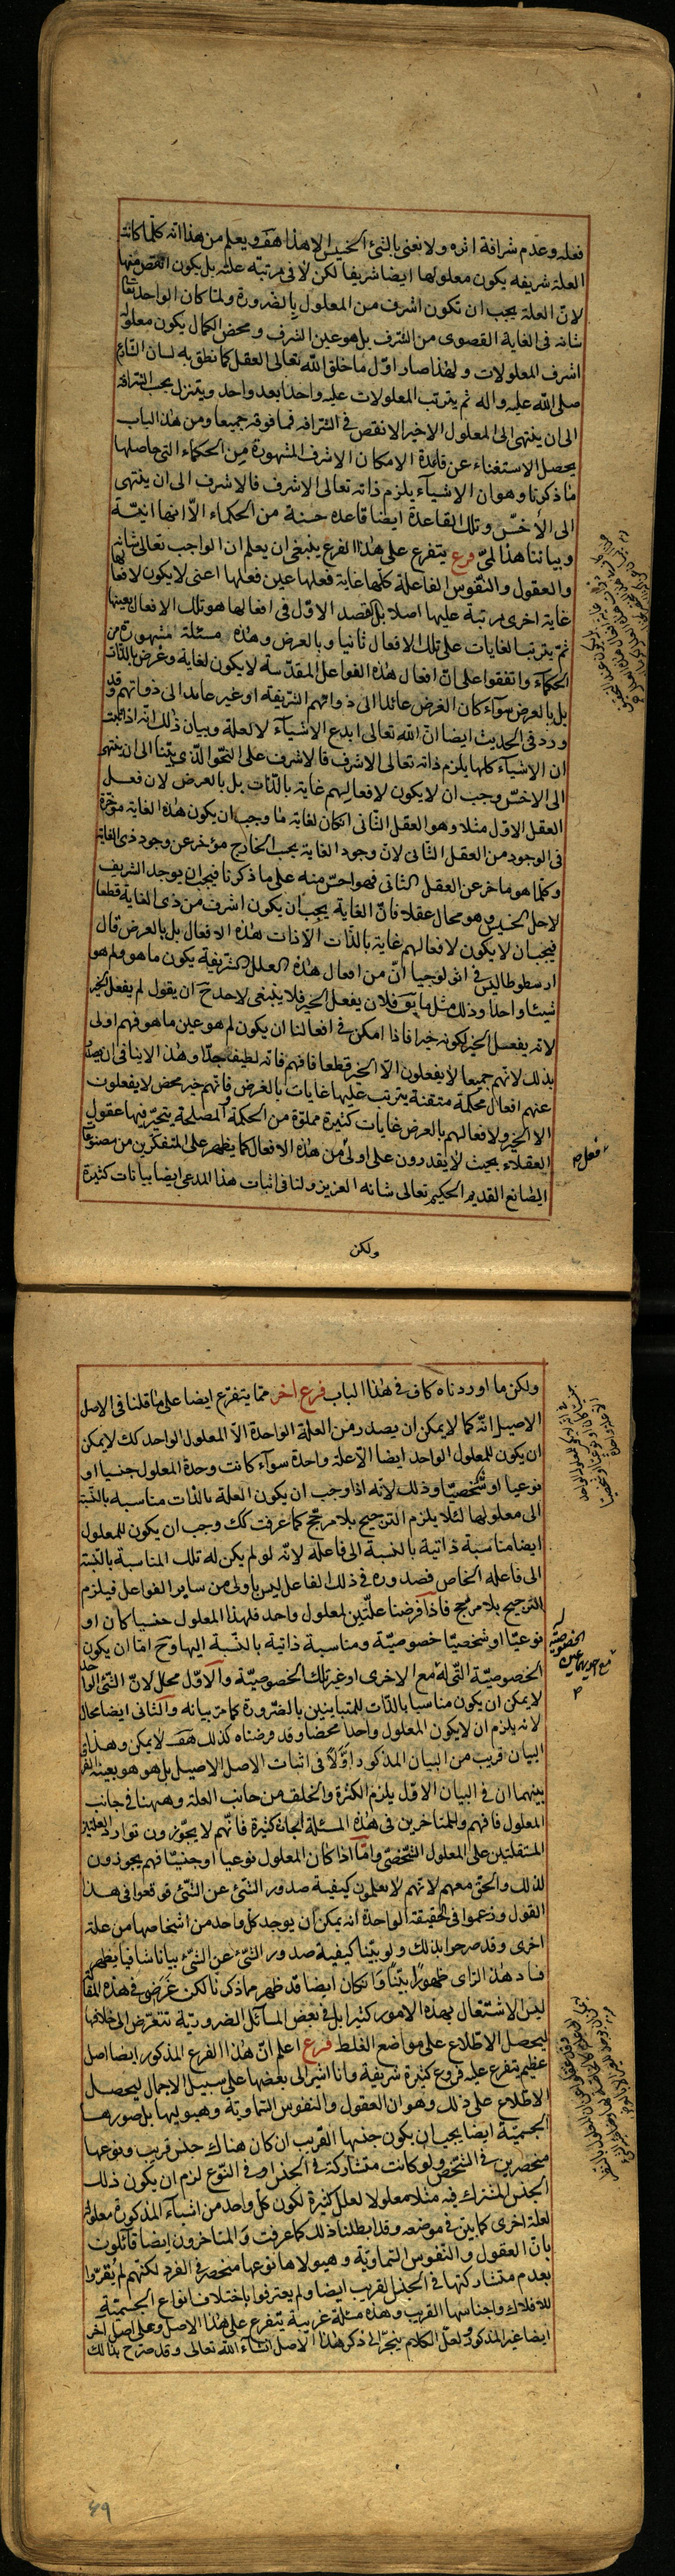 فعله وعدم شرافة اثره ولا نعنى بالشئ الخسيس الا هذا هف ويعلم من هذا انه كلما كانت
العلة شريفه يكون معلولها ايضا شريفا لكن لا فى مرتبة علته بل يكون انقص منها
لان العلة يجب ان تكون اشرف من المعلول بالضرورة ولما كان الواحد تعالى
شانه فى الغاية القصوى من الشرف بل هو عين الشرف ومحض الكمال يكون معلوله
اشرف المعلولات ولهذا صار اول ما خلق الله تعالى العقل كما نطق به لسان الشارع
صلى الله عليه واله ثم يترتب المعلولات عليه واحدا بعد واحد ويتنزل بحسب الشرافة
الى ان ينتهى الى المعلول الاخير الانقص فى الشرافه فما فوقه جميعا ومن هذا الباب
يحصل الاستغناء عن قاعدة الامكان الاشرف المشهورة من الحكماء التى حاصلها
ما ذكرنا وهو ان الاشياء يلزم ذاته تعالى الاشرف فالاشرف الى ان ينتهى
الى الأخسّ وتلك القاعدة ايضا قاعده حسنة من الحكماء الّا انها انيّة
وبياننا هذا لمىّ فرع يتفرع على هذا الفرع ينبغى ان يعلم ان الواجب تعالى شانه
والعقول والنفوس الفاعلة كلها غاية فعلها عين فعلها اعنى لا يكون لافعالها
غاية اخرى مرتبة عليها اصلا بل القصد الاول فى افعالها هو تلك الافعال بعينها
ثم يترتب الغايات على تلك الافعال ثانيا وبالعرض وهذه مسئلة مشهورة من
الحكماء واتفقوا على انّ افعال هذه الفواعل المقدّسة لا يكون لغاية وغرض بالذات
بل بالعرض سوآء كان الغرض عائدا الى ذواتهم الشريفة او غير عائد الى ذواتهم وقد
ورد فى الحديث ايضا انّ الله تعالى ابدع الاشياء لا لعلة وبيان ذلك انه اذا ثبت
ان الاشياء كلها يلزم ذاته تعالى الاشرف فالاشرف على النحو الذى بيّنا الى ان ينتهى
الى الاخسّ وجب ان لا يكون لافعالهم غاية بالذات بل بالعرض لان فعل
العقل الاول مثلا وهو العقل الثانى ان كان لغاية ما وجب ان يكون هذه الغاية مؤخرة
فى الوجود من العقل الثانى لان وجود الغاية يجب الخارج مؤخر عن وجود ذى الغاية
وكلما هو مؤخر عن العقل الثانى فهو اخسّ منه على ما ذكرنا فيجب ان يوجد الشريف
لاجل الخسيس وهو محال عقلا فانّ الغاية يجب ان يكون اشرف من ذى الغاية قطعا
فيجب ان لا يكون لافعالهم غاية بالذات الا ذات هذه الافعال بل بالعرض قال
ارسطوطاليس فى اثولوجيا انّ من افعال هذه العلل الشريفة يكون ما هو ولم هو
شيئا واحدا وذلك مثل ما يق فلان يفعل الخير فلا ينبغى لاحد ح ان يقول لم يفعل الخير
لانه يفعل الخير لكونه خيرا فاذا امكن فى افعالنا ان يكون لم هو عين ما هو فهم اولى
بذلك لانهم جميعا لا يفعلون الّا الخير قطعا فافهم فانه لطيف جدّا وهذا لا ينافى ان يصدر
عنهم افعال محكمة متقنة يترتب عليها غايات بالعرض فانهم خير محض لا يفعلون
الا الخير ولافعالهم بالعرض غايات كثيرة مملوة من الحكمة والمصلحة يتحيّر فيها عقول
العقلاء بحيث لا يقدرون على اولى من هذه الافعال كما يظهر على المتفكرين من مصنوعات
الصانع القديم الحكيم تعالى شانه العزيز ولنا فى اثبات هذا المدعى ايضا بيانات كثيرة
فعل ص
ولكن
ولكن ما اوردناه كاف فى هذا الباب فرع اخر مما يتفرع ايضا على ما قلنا فى الاصل
الاصيل انّه كما لا يمكن ان يصدر من العلة الواحدة الا المعلول الواحد كك لا يمكن
ان يكون للمعلول الواحد ايضا الّا علة واحدة سوآء كانت وحدة المعلول جنسيا او
نوعيا او شخصيّا وذلك لانه اذا وجب ان يكون العلة بالذات مناسبه بالنسبة
الى معلولها لئلا يلزم الترجيح بلا مرجح كما عرفت كك وجب ان يكون للمعلول
ايضا مناسبة ذاتية بالنسبة الى فاعله لانّه لو لم يكن له تلك المناسبة بالنسبة
الى فاعله الخاص فصدوره فى ذلك الفاعل ليس باولى من ساير الفواعل فيلزم
الترجيح بلا مرجح فاذا فرضنا علّتين لمعلول واحد فلهذا المعلول جنسيا كان او
نوعيّا او شخصيّا خصوصيّة ومناسبة ذاتية بالنسبة اليها وح اما ان يكون
الخصوصيّة الّتى له مع الاخرى او غير تلك الخصوصيّة والاوّل محال لانّ الشئ الواحد
لا يمكن ان يكون مناسبا بالذات للمتباينين بالضرورة كما مرّ بيانه والثانى ايضا محال
لانه يلزم ان لا يكون المعلول واحدا محضا وقد فرضناه كذلك هف لا يمكن وهذا
البيان قريب من البيان المذكور اوّلاً فى اثبات الاصل الاصيل بل هو هو بعينه الفرق
بينهما ان فى البيان الاول يلزم الكثرة والخلف من جانب العلة وههنا فى جانب
المعلول فافهم وللمتاخرين فى هذه المسئلة ابحاث كثيرة فانّهم لا يجوّزون توارد العلتين
المستقلتين على المعلول الشخصىّ وامّا اذا كان المعلول نوعيا او جنسيّا فهم يجوزون
لذلك والحق معهم لانهم لا يعلمون كيفية صدور الشئ عن الشئ فوقعوا فى هذا
القول وزعموا فى الحقيقة الواحدة انه يمكن ان يوجد كل واحد من اشخاصها من علة
اخرى وقد صرحوا بذلك ولو بيّنا كيفية صدور الشئ عن الشئ بيانا شافيا يظهر
فساد هذا الراى ظهورا بيّنا وان كان ايضا قد ظهر مما ذكرنا لكن غَرَضى فى هذه المقالة
ليس الاشتغال بهذه الامور كثيرا بل فى بعض المسائل الضرورية نتعرض الى خلافها
ليحصل الاطلاع على مواضع الغلط فرع اعلم انّ هذا الفرع المذكور ايضا اصل
عظيم يتفرع عليه فروع كثيرة شريفة وانا اشير الى بعضها على سبيل الاجمال ليحصل
الاطلاع على ذلك وهو ان العقول والنفوس السماوية وهيوليها بل صورها
الجسميّة ايضا يجب ان يكون جنسها القريب ان كان هناك جنس قريب ونوعها
منحصرين فى الشخص ولو كانت متشاركة فى الجنس او فى النوع لزم ان يكون ذلك
الجنس المشترك فيه مثلا معلولا لعلل كثيرة لكون كل واحد من اشياء المذكورة معلولة
لعلة اخرى كما بيّن فى موضعه وقد ابطلنا ذلك كما عرفت والمتاخرون ايضا قائلون
بانّ العقول والنفوس السماويّة وهيولاها نوعها منحصر فى الفرد لكنّهم لم يُقرّوا
بعدم متشاركتها فى الجنس القريب ايضا ولم يعترفوا باختلاف انواع الجسميّة
للافلاك واجناسها القريب وهذه مسئلة غريبة يتفرع على هذا الاصل وعلى اصل اخر
ايضا غير المذكور ولعلّ الكلام ينجرّ الى ذكر هذا الاصل انشاء الله تعالى وقد صرّح بذلك
٤٩